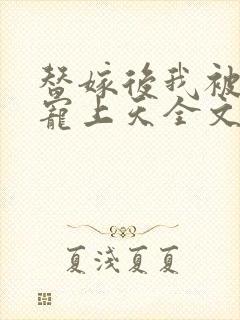 替嫁後我被
寵上天全文
夏淺夏夏